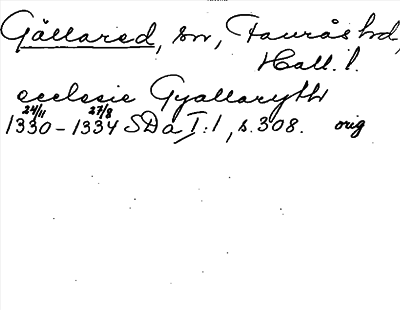 Gällared, sn, Faurås hd,
Hall. l.
ecclesie Gyallaryth
24/11 27/8
1330-1334 SDa I:1, s. 308. orig